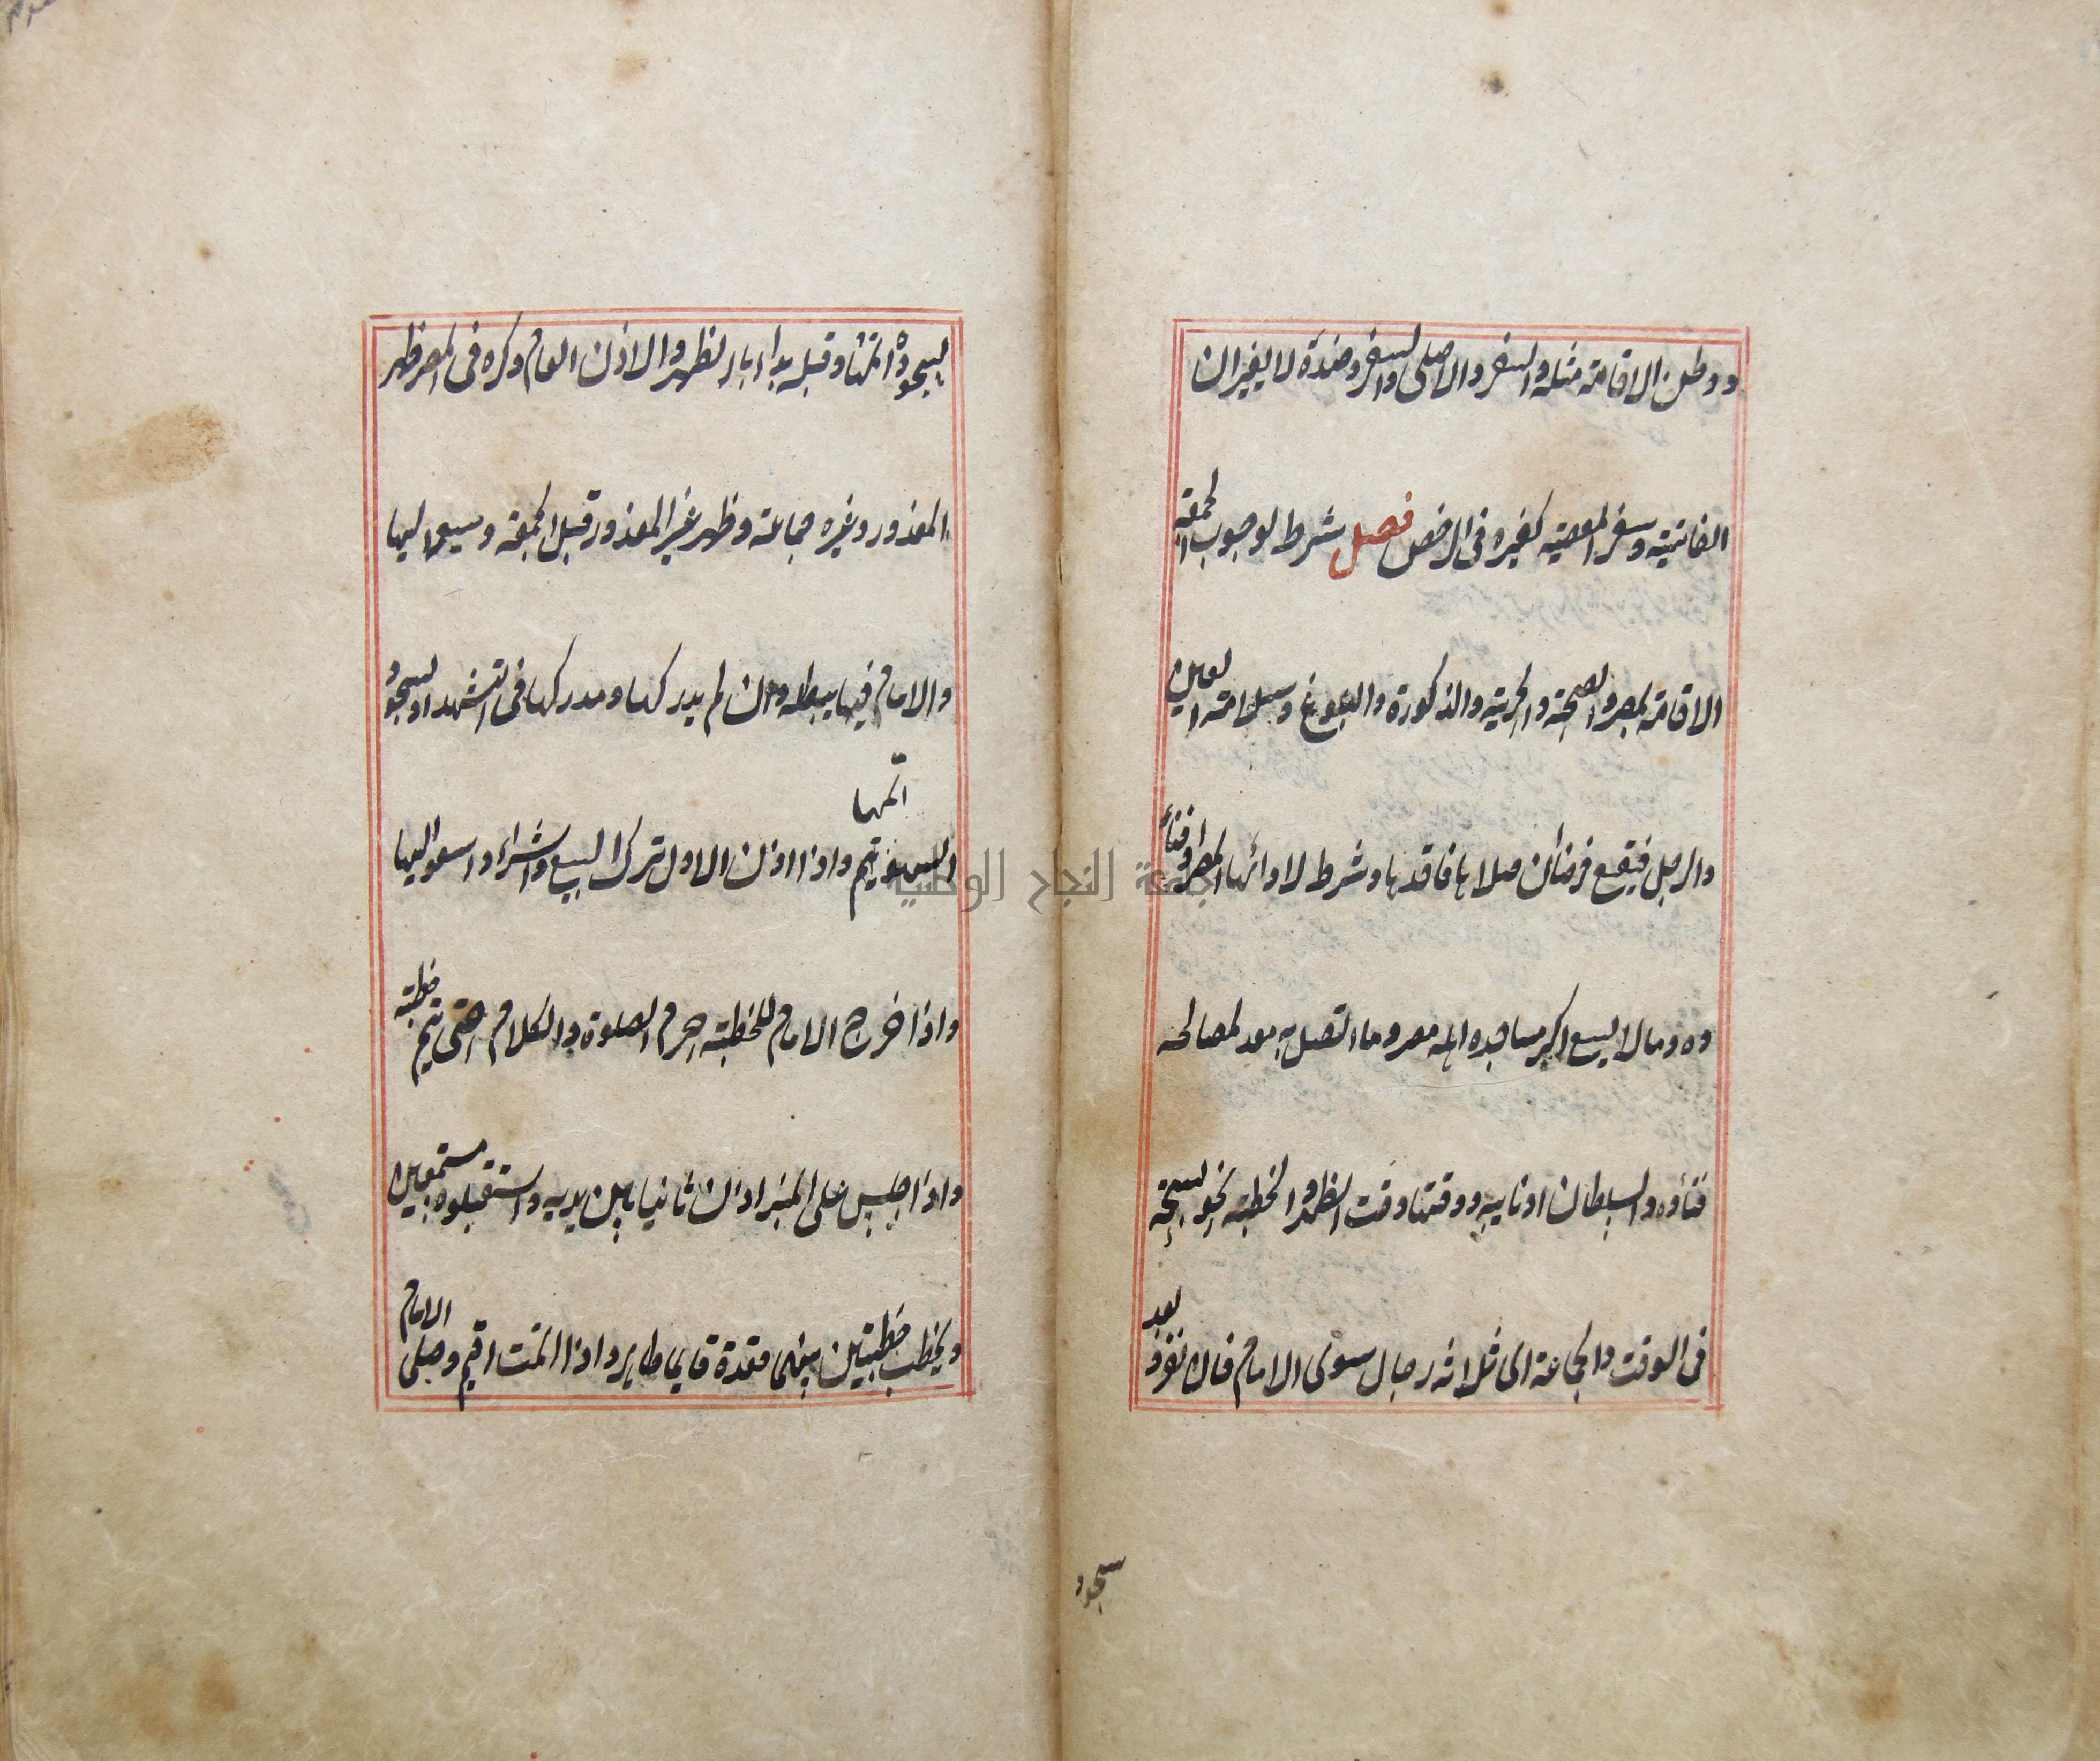 ووطن الاقامة مثله والسفر والاصلى والسفر وضدة لا يغيران
الفائتية وسفر المعصية كغيره فى الرخص فصل شرط لوجوب الجمعة
الاقامة بمصر والصحة والحرية والذكورة والبلوغ وسلامة العين
والرجل فيقع فرضا ان صلاها فاقدها وشرط لادائها المصر او فناؤ
وه وما لا يسع اكبر مساجده اهله مصر وما اتصل به معد لمصالحه
فناؤه والسلطان او نايبه ووقتها وقت الظهر والخطبة نحو تسبيحة
فى الوقت والجماعة اى ثلاثة رجال سوى الامام فان نفروا بعد
سجود
سجوده اتمها وقبله بداء بالظهر والاذن العام وكره فى المصر ظهر
المعذور وغيره جماعة وظهر غير المعذور قبل الجمعة وسعيه اليها
والامام فيها يبطله وان لم يدركها ومدركها فى التشهد او سجود
اتمها
السهو يتم واذا اذن الاول ترك البيع والشراء واسعوا اليها
واذا خرج الامام للخطبة حرم الصلوة والكلام حتى يتم خطبته
واذا جلس على المنبر اذن ثانيا بين يديه واستقبلوه مستمعين
ويخطب خطبتين بينهما قعدة قايما طاهرا واذا اتمت اقيم وصلى الامام
جامعة النجاح الوطنية